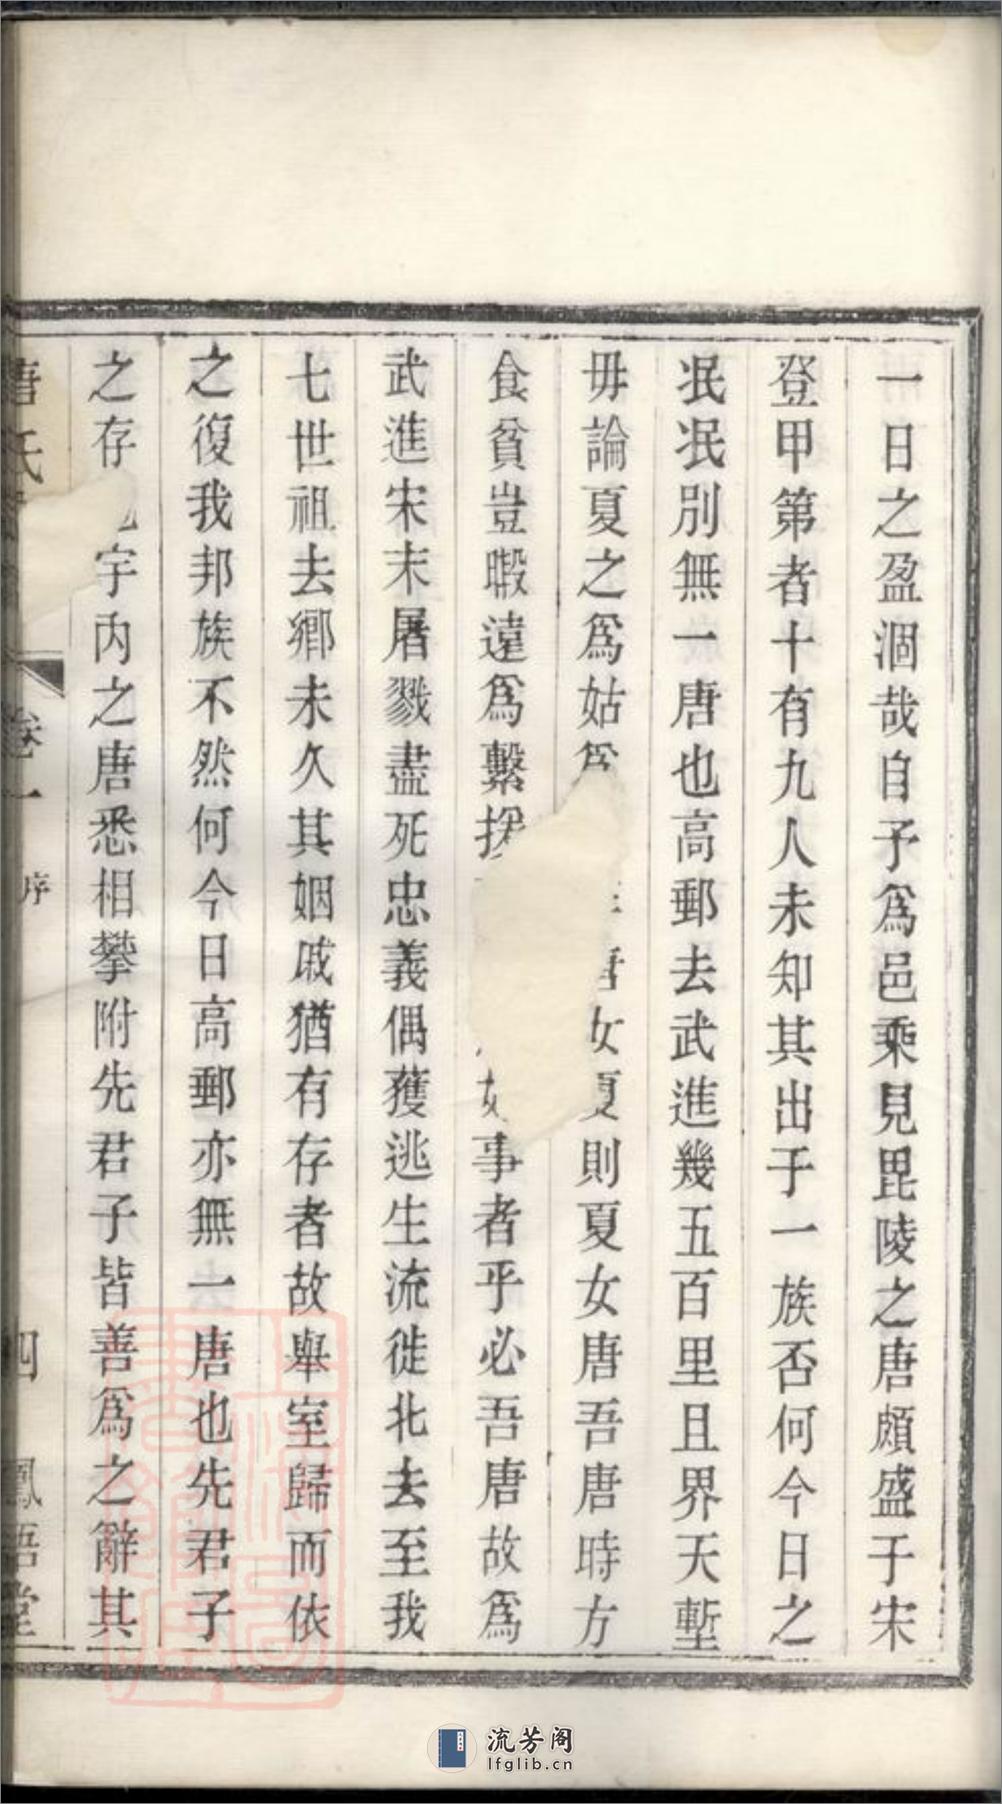 一日之盈涸哉自予爲邑乘見毘陵之唐頗盛于宋
登甲第者十有九人未知其出于一族否何今日之
泯泯別無一唐也高郵去武進幾五百里且界天塹
毋論夏之爲姑爲唐女夏則夏女唐吾唐時方
食貧豈暇遠爲繫援好事者乎必吾唐故爲
武進宋末屠戮盡死忠義偶獲逃生流徙北去至我
七世祖去鄉未久其姻戚猶有存者故舉室歸而依
之復我邦族不然何今日高郵亦無一唐也先君子
之存宇內之唐悉相攀附先君子皆善爲之辭其
唐氏
卷一
序
四
鳳語堂
流芳阁
lfglib.cn